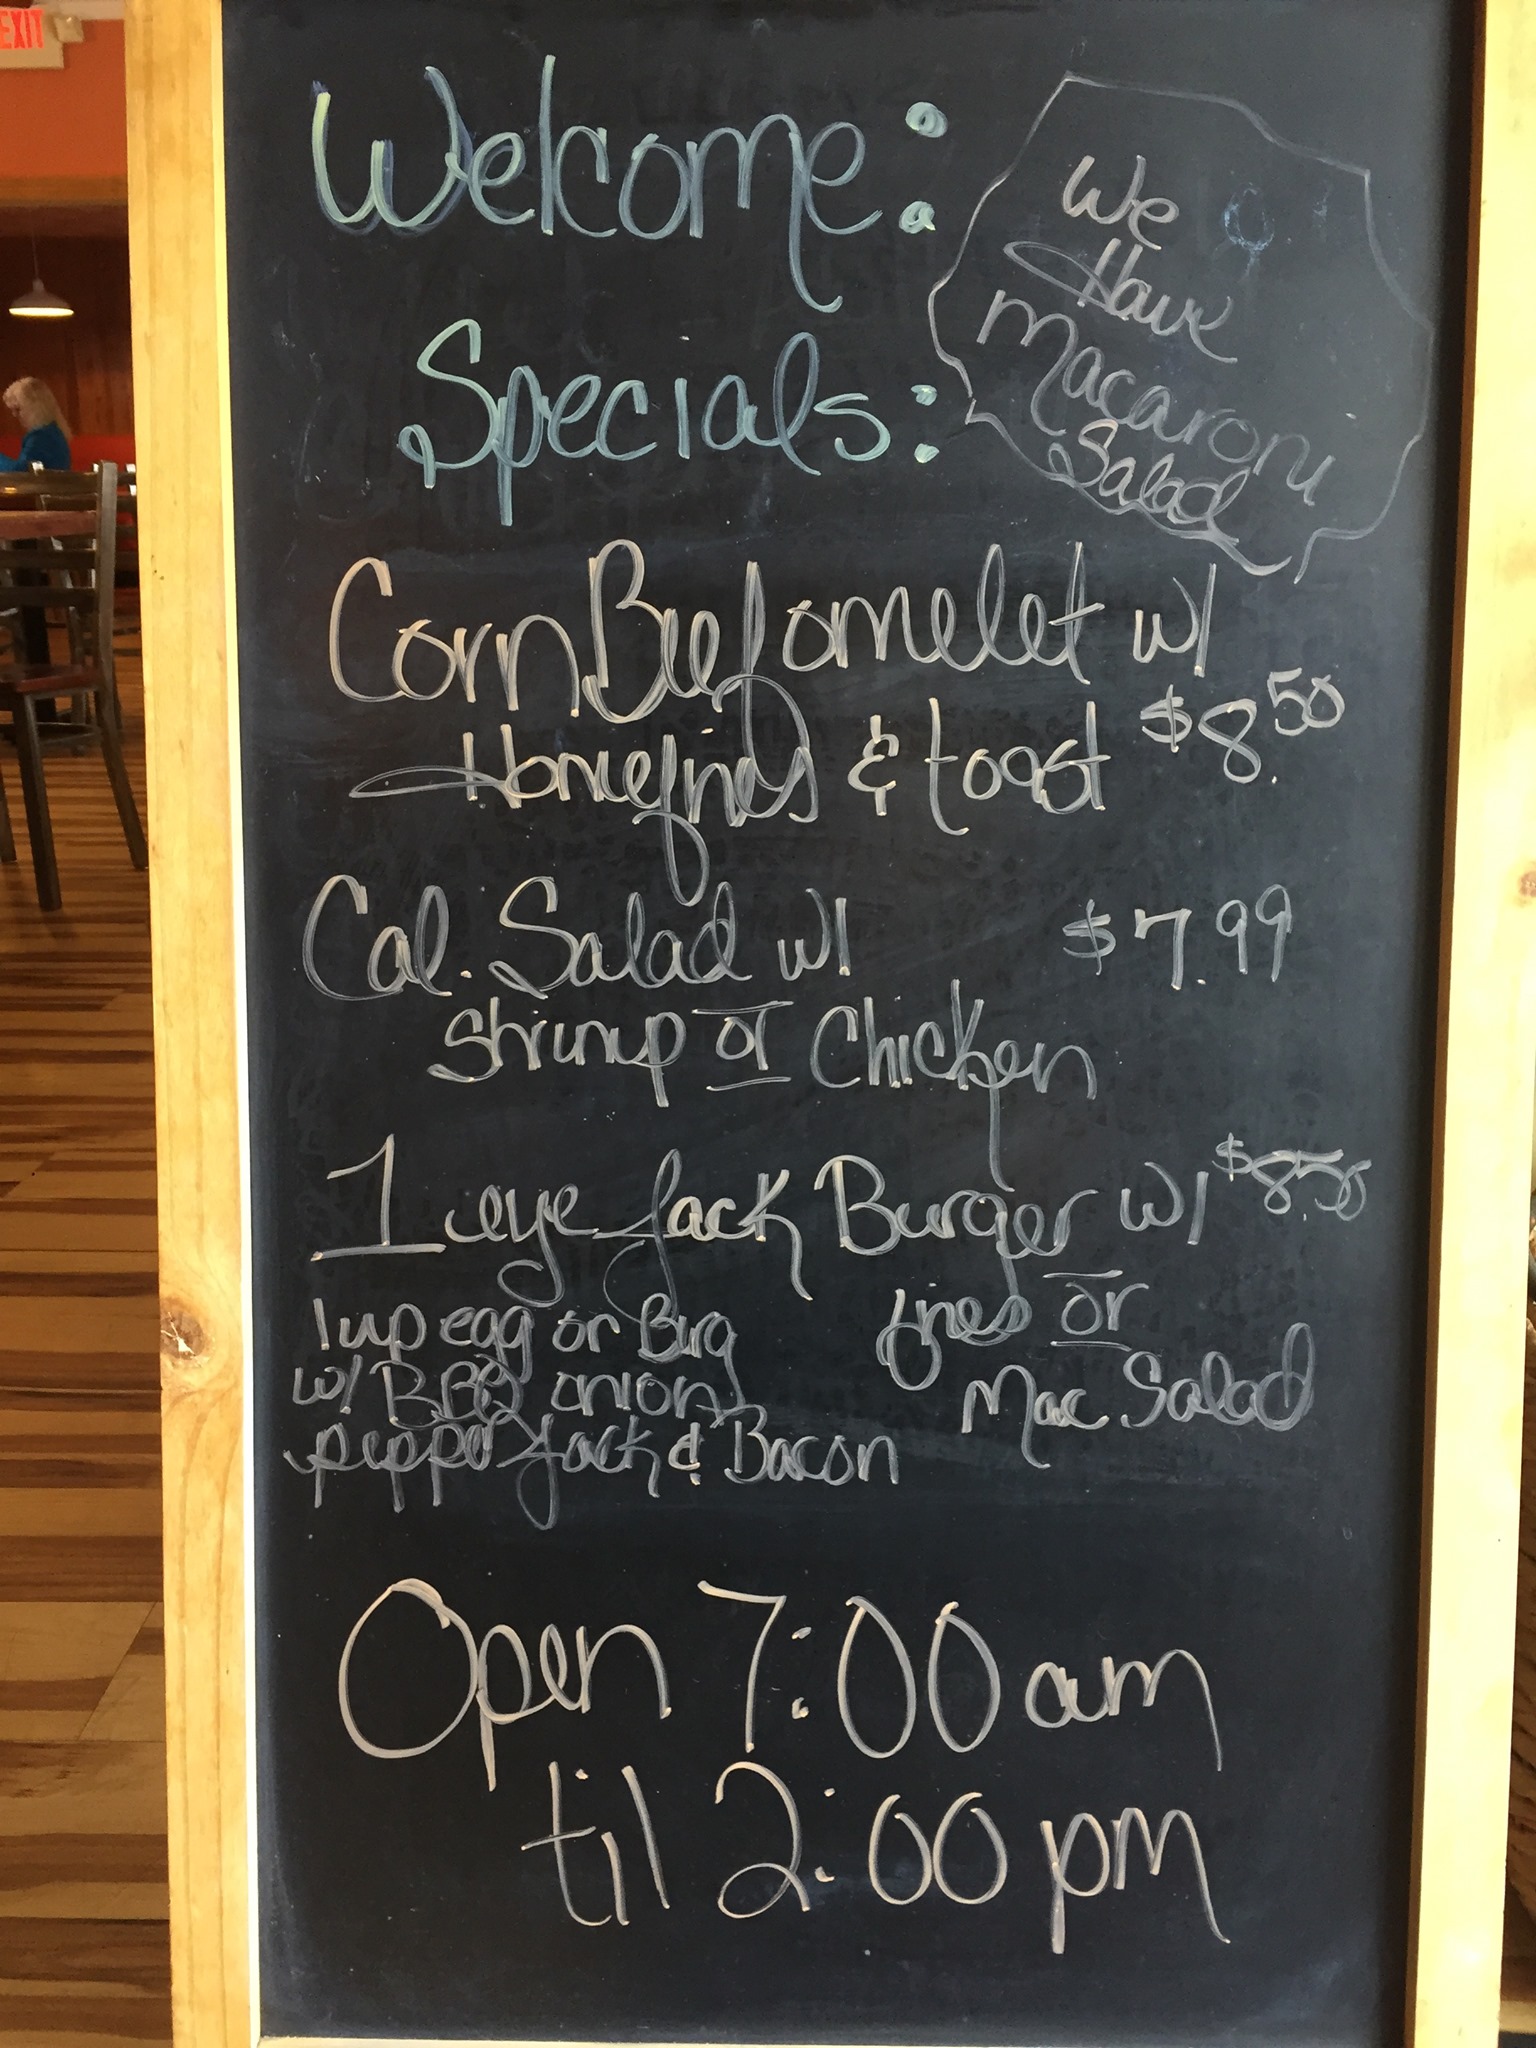 EXIT
Welcome:
Specials:
We
Have
Macaroni
Salad
Corn Beef omelet w/
Homefries & toast $8.50
Cal. Salad w/ $7.99
Shrimp or Chicken
1 eye Jack Burger w/ $8.50
1 up egg or Burg
w/ BBQ onion
pepper Jack & Bacon
fries or
Mac Salad
Open 7:00 am
til 2:00 pm